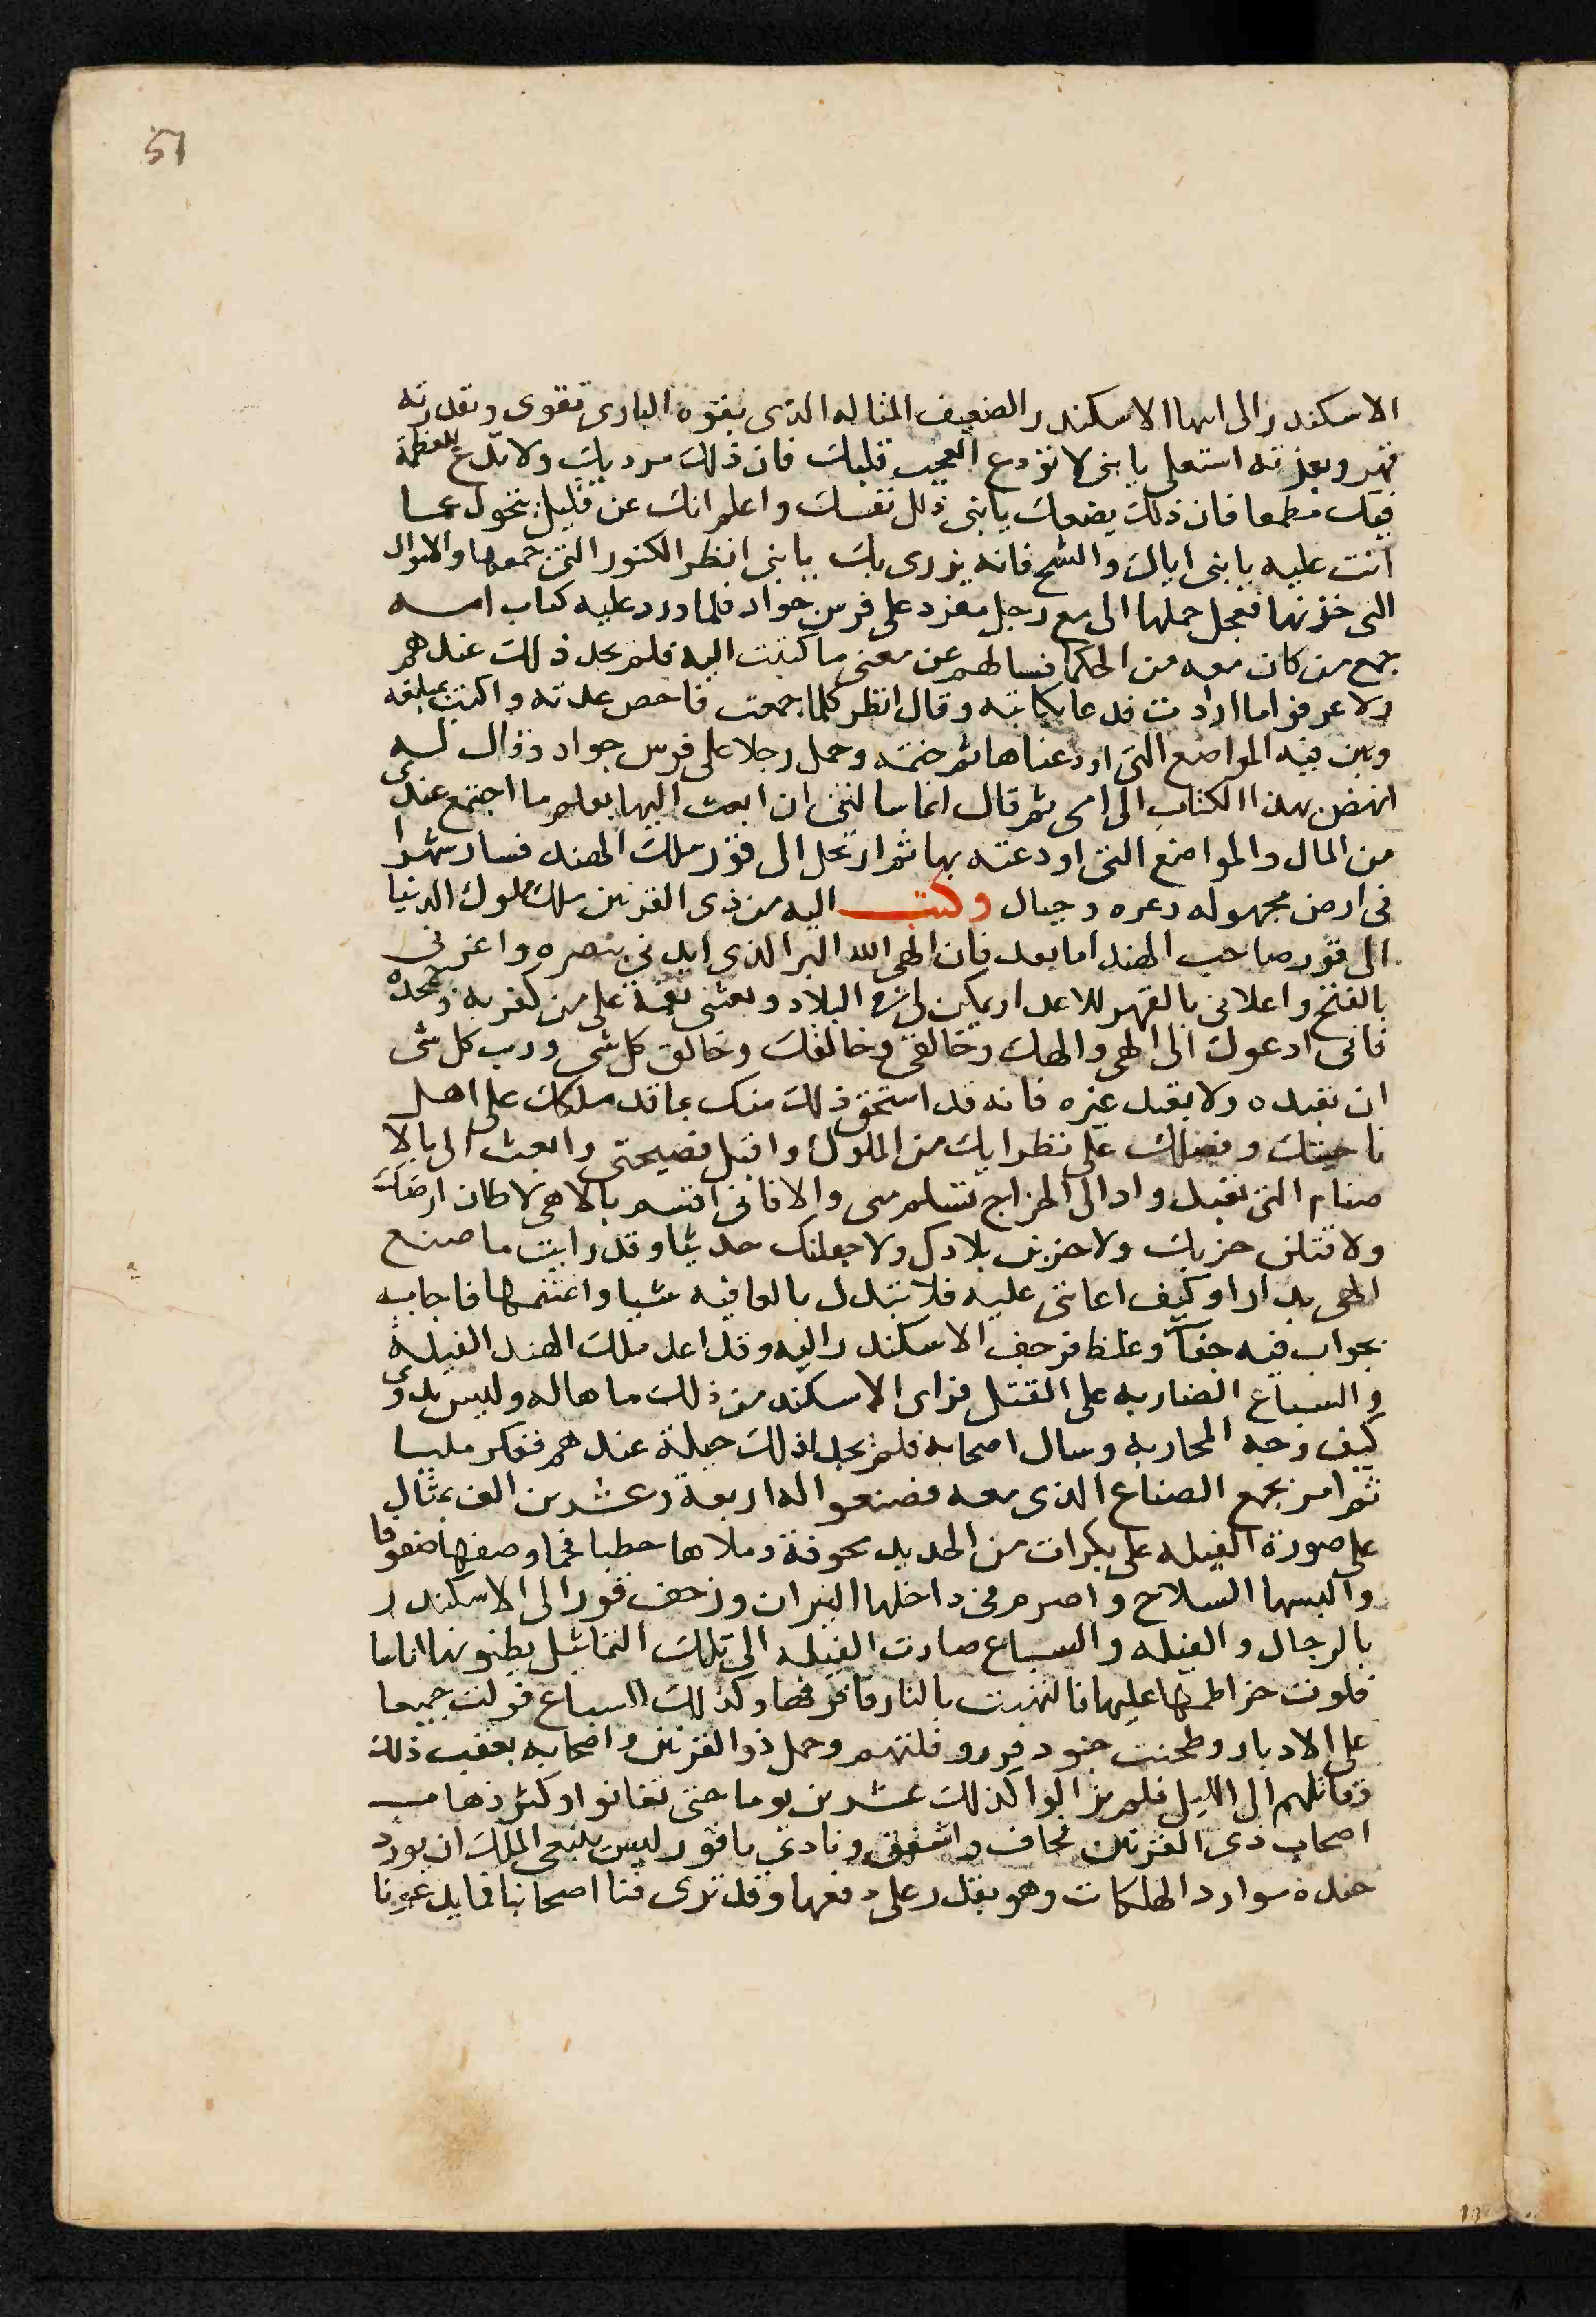 51
الاسكندر الى ابنها الاسكندر الضعيف المثاله الذى بقوه البارى تقوى وبقدرته
قهر وبعزته استعلى يا بنى لا تودع العجب قلبك فان ذلك مرديك ولا تدع للعظمة
فيك مطمعا فان ذلك يضعك يا بنى ذلل نفسك واعلم انك عن قليل تتحول عما
انت عليه يا بنى اياك والشح فانه يزرى بك يا بنى انظر الكنوز التى جمعها والاموال
التى خزنها فعجل حملها الى مع رجل مفرد على فرس جواد فلما ورد عليه كتاب امه
جمع من كان معه من الحكما فسالهم عن معنى ما كتبت اليه فلم يجد ذلك عندهم
ولا عرفوا ما ارادت فدعا بكاتبه وقال انظر كلما جمعت فاحص عدته واكتب بمبلغه
وبين فيه المواضع التى اودعناها ثم ختمه وحمل رجلا على فرس جواد وقال له
انهض بهذا الكتاب الى امى ثم قال انما سالتنى ان ابعث اليها بعلم ما اجتمع عندى
من المال والمواضع التى اودعته بها ثم ارتحل الى فور ملك الهند فسار شهرا
فى ارض مجهوله وعره وجبال وكتب اليه من ذى القرنين ملك ملوك الدنيا
الى فور صاحب الهند اما بعد فان الهى الله البر الذى ايدنى بنصره واعزنى
بالفتح واعلانى بالقهر للاعدا ويمكن لى فى البلاد وبعثنى نقمة على من كفر به وجحده
فانى ادعوك الى الهى والهك وخالقى وخالقك وخالق كل شى ورب كل شى
ان تعبده ولا تعبد غيره فانه قد استحق ذلك منك بما قد ملكك على اهل
ناحيتك وفضلك على نظرايك من الملوك واقبل نصيحتى وابعث الى بالا
صنام التى تعبد واد الى الخراج تسلم منى والا فانى اقسم بالاهى لاطان ارضك
ولاقتلن حزبك ولاخربن بلادك ولاجعلنك حديثا وقد رايت ما صنع
الهى بدارا وكيف اعاننى عليه فلا تبدل بالعافيه شيا واغتنمها فاجابه
بجواب فيه جفآ وغلظ فزحف الاسكندر اليه وقد اعد ملك الهند الفيله
والسباع الضاريه على القتل فراى الاسكند من ذلك ما هاله وليس يدرى
كيف وجه المحاربه وسال اصحابه فلم يجد لذلك حيلة عندهم ففكر مليا
ثم امر بجمع الصناع الذى معه فصنعوا له اربعة وعشرين الف تمثال
على صورة الفيله على بكرات من الحديد مجوفة وملاها حطبا فحما وصفها صفوفا
والبسها السلاح واضرم فى داخلها النيران وزحف فور الى الاسكندر
بالرجال والفيله والسباع صارت الفيله الى تلك التماثيل يظنونها اناسا
فلوت خراطمها عليها فالتهبت بالنار فاحرقها وكذلك السباع فولت جميعا
على الادبار وطحنت جنود فور وقلتهم وحمل ذو القرنين واصحابه بعقب ذلك
فقاتلهم الى الليل فلم يزالوا كذلك عشرين يوما حتى تفانوا وكثر ذهاب
اصحاب ذى القرنين فخاف واشفق ونادى يا فور ليس ينبغى الملك ان يورد
جنده موارد الهلكات وهو يقدر على دفعها وقد ترى فنا اصحابنا فما يدعونا